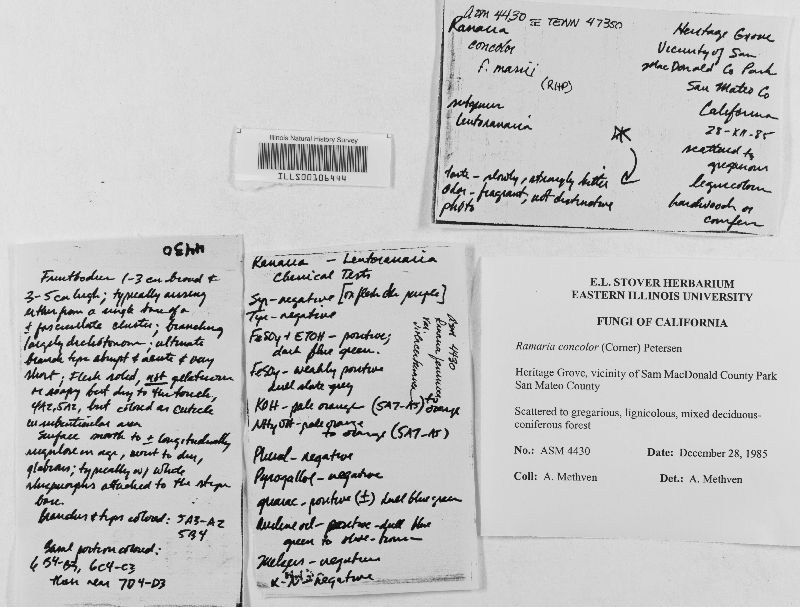 ASM 4430 = TENN 47350
Ramaria
concolor
f. marrii
(RHP)
subgenus
Lentoramaria
taste - slowly, strongly bitter
odor - fragrant, not distinctive
photo
Heritage Grove
Vicinity of Sam
MacDonald Co Park
San Mateo Co
California
28-XII-85
scattered to
gregarious
lignicolous
hardwoods or
conifers
Illinois Natural History Survey
ILLS00106444
4430
Fruitbodies 1-3 cm broad &
3-5 cm high; typically arising
either from a single base or a
± fasciculate cluster; branching
largely dichotomous; ultimate
branch tips abrupt & acute & very
short; flesh solid, not gelatinous
or soapy but dry to the touch,
4A2, 5A2, but colored as cuticle
in subcuticular area
Surface smooth to ± longitudinally
rugulose in age, moist to dry,
glabrous; typically w/ white
rhizomorphs attached to the stipe
base.
Branches & tips colored: 5A3-A2
5B4
Basal portion colored:
6B4-B3, 6C4-C3
then near 7D4-D3
Ramaria - Lentoramaria
Chemical Tests
Syr - negative [on flesh dk purple]
Tyr - negative
FeSO4 + ETOH - positive;
dark blue green.
FeSO4 - weakly positive
dull slate grey
KOH - pale orange (5A7-A5)
NH4OH - pale orange
to orange (5A7-A5)
Phenol - negative
Pyrogallol - negative
guaiac - positive (±) dull blue green
Aniline oil - positive - dull blue
green to olive-brown
Melzers - negative
negative
ASM 4430
Ramaria
to orange
E.L. STOVER HERBARIUM
EASTERN ILLINOIS UNIVERSITY
FUNGI OF CALIFORNIA
Ramaria concolor (Corner) Petersen
Heritage Grove, vicinity of Sam MacDonald County Park
San Mateo County
Scattered to gregarious, lignicolous, mixed deciduous-
coniferous forest
No.: ASM 4430 Date: December 28, 1985
Coll: A. Methven Det.: A. Methven